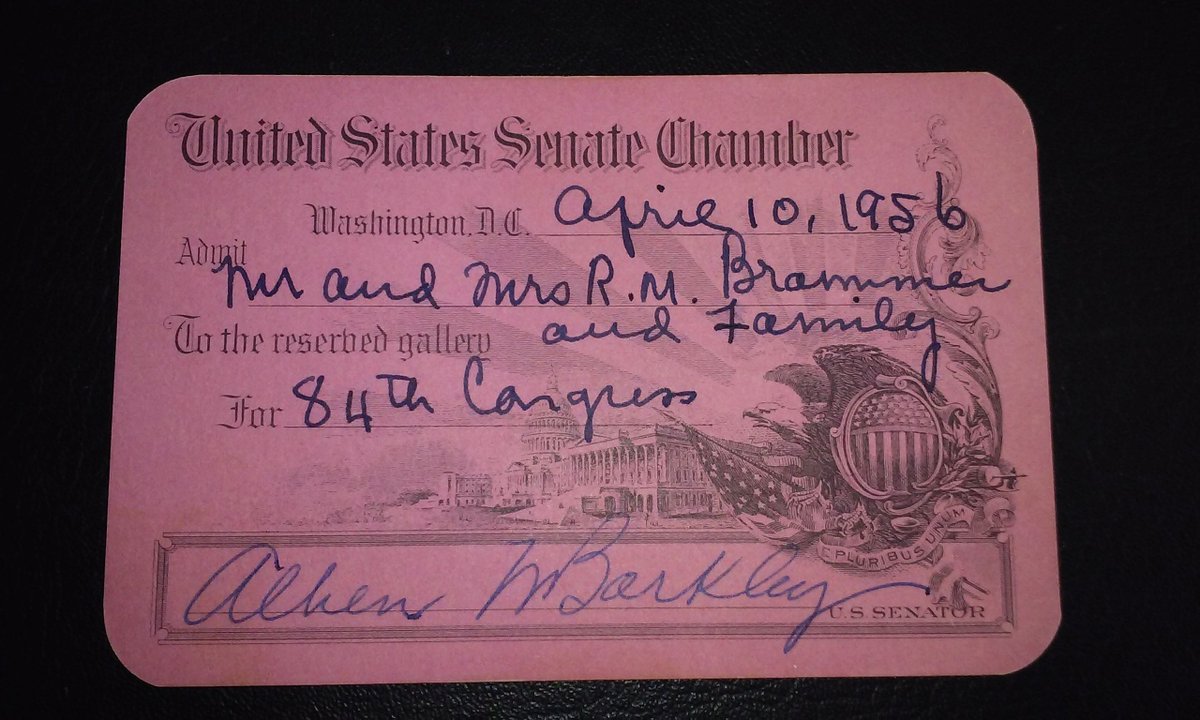 United States Senate Chamber
Washington, D.C. April 10, 1956
Admit
Mr and Mrs R.M. Brammer
and Family
To the reserved gallery
For 84th Congress
E PLURIBUS UNUM
Alben W Barkley
U.S. SENATOR